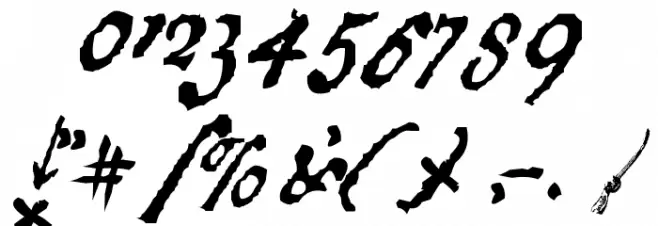 0123456789
! " # / % & ( ) * , - .